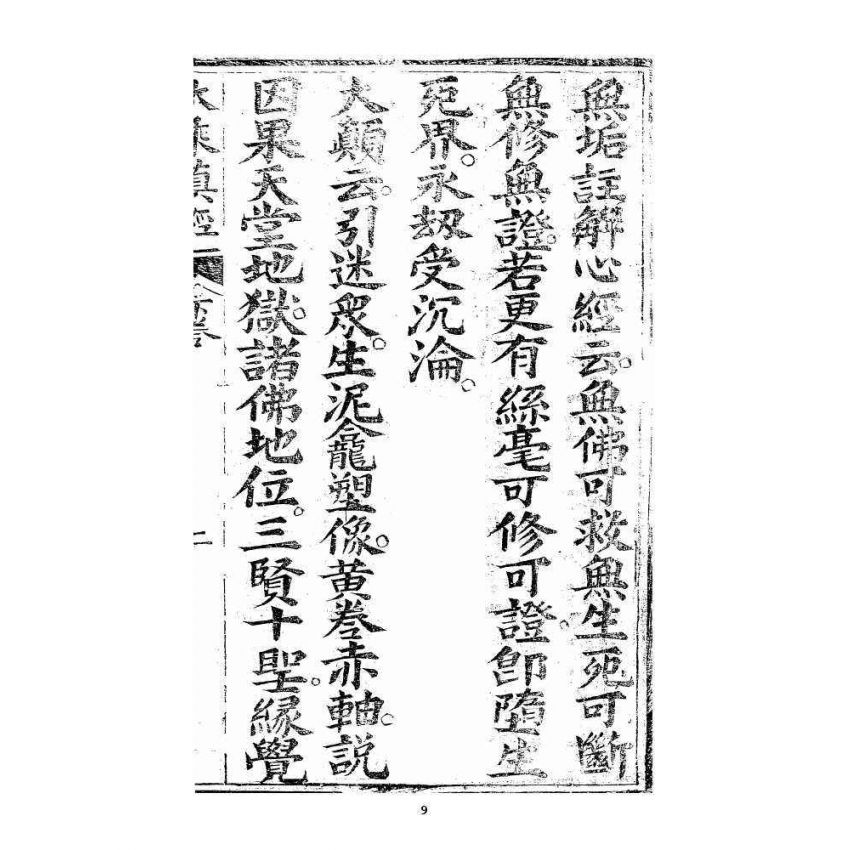 無垢註解心經云。無佛可救。無生死可斷
無修無證。若更有絲毫可修可證。卽墮生
死界。永劫受沉淪。
大顚云。引迷衆生。泥龕塑像。黃卷赤軸。説
因果天堂地獄。諸佛地位。三賢十聖。緣覺
大乘眞經 二
9